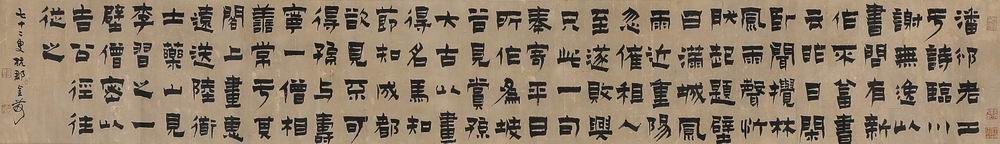 潘邠老工
于詩臨川
謝無逸以
書問有新
作不答書
云昨日閑
臥聞攪林
風雨聲忻
肰起題壁
曰滿城風
雨近重陽
忽催租人
至遂敗興
只此一句
奉寄平日
所作為坡
昔見賞孫
太古以畫
得名馬知
節知成都
欲見不可
得孫与壽
寧一僧相
善常于其
閣上畫惠
遠送陸衜
士藥山見
李習之一
壁僧密以
告公徑往
從之
七十二叟杭郡金農